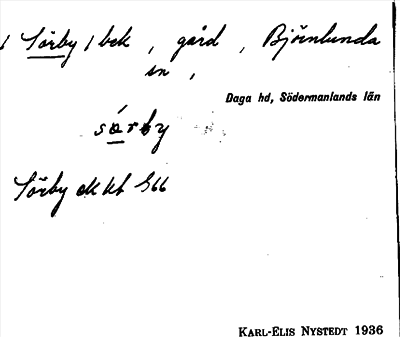 Sörby / bck , gård , Björnlunda
sn ,
Daga hd, Södermanlands län
Sörby ek kbl S66
KARL-ELIS NYSTEDT 1936